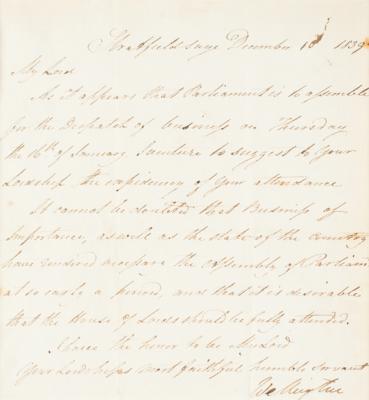 Stratfield Saye December 18 1839
My Lord
As it appears that Parliament is to assemble
for the Despatch of business on Thursday
the 16th of January I venture to suggest to Your
Lordship the expediency of Your attendance
It cannot be doubted that Business of
Importance, as well as the state of the country
have rendered necessary the assembly of Parliament
at so early a period, and that it is desirable
that the House of Lords should be fully attended.
I have the honor to be My Lord
Your Lordships most faithful humble Servant
Wellington